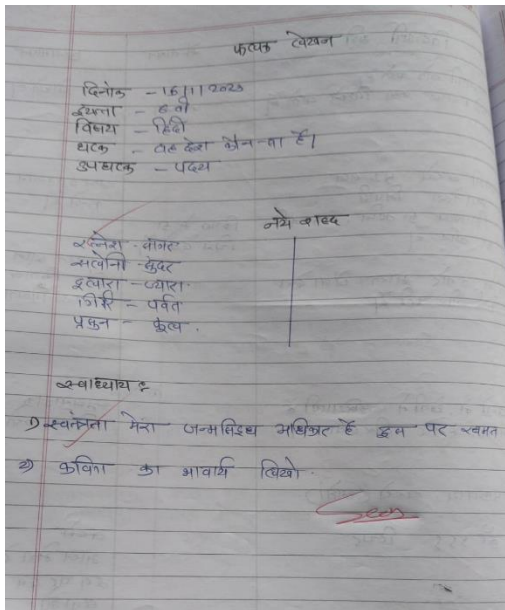 फलक लेखन
दिनांक - 16/1/2023
इयत्ता - ८ वी
विषय - हिंदी
घटक - वह देश कौन-सा है।
उपघटक - पद्य
नये शब्द
सलोनी - सुंदर
दुलारा - प्यारा
गिरि - पर्वत
प्रसुन - फुल
स्वाध्याय :
1) स्वतंत्रता मेरा जन्मसिद्ध अधिकार है इस पर स्वमत
2) कविता का भावार्थ लिखो.
Seen